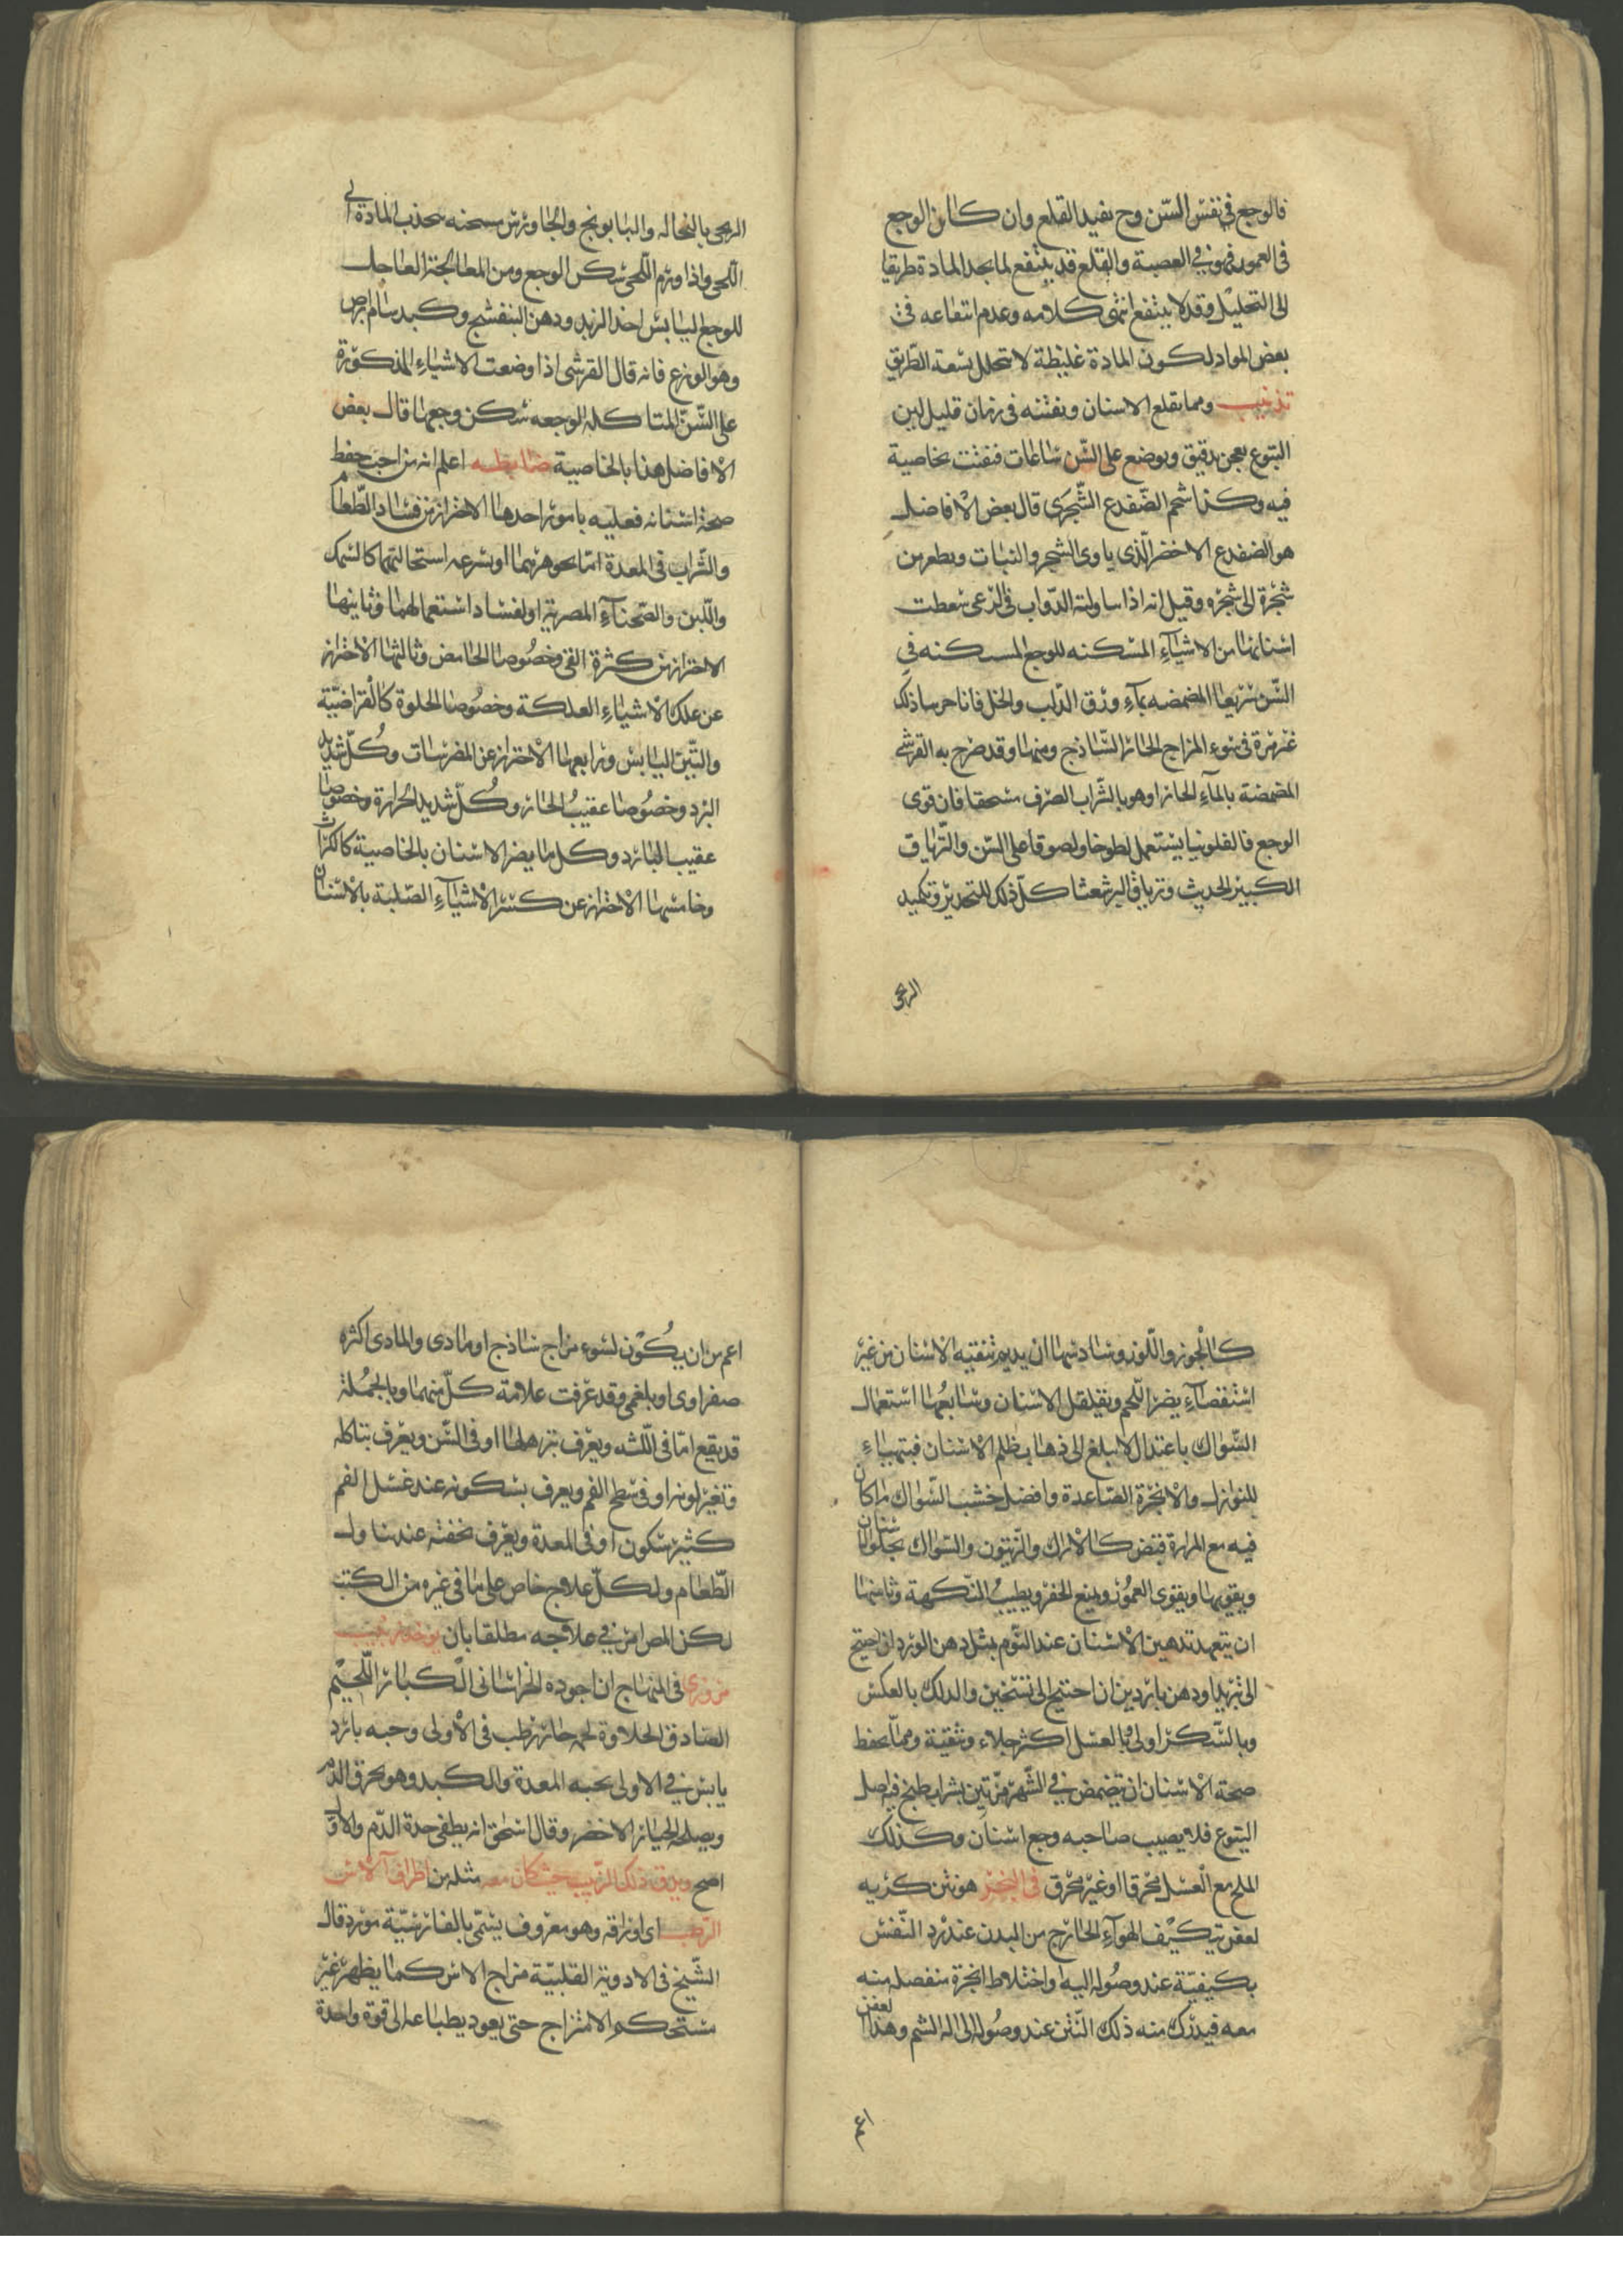 فالوجع في نفس السن وح يفيد القلع وان كان الوجع
في العمور فهو في العصبة والقلع قد ينتفع لما يجد المادة طريقا
الى التحليل وقد لا ينتفع انتهى كلامه وعدم انتفاعه في
بعض المواد لكون المادة غليظة لا تتحلل بسعة الطريق
تذنيب ومما يقلع الاسنان ويفتته في زمان قليل لبن
اليتوع يعجن بدقيق ويوضع على السن ساعات فتفتت بخاصية
فيه وكذا شحم الضفدع الشجرى قال بعض الافاضل
هو الضفدع الاخضر الذي ياوى الشجر والنبات ويطفر من
شجرة الى شجرة وقيل انه اذا ساولته الدواب في الرعى سقطت
اسنانها من الاشياء المسكنه للوجع المسكنه في
السن سريعا المضمضه بماء ورق الدلب والخل فانا جربنا ذلك
غير مرة في سوء المزاج الحار الساذج ومنها وقد صرح به القرشي
المضمضة بالماء الحار او هو بالشراب الصرف مسحقا فان قوى
الوجع فالفلونيا يستعمل لطوخا ولصوقا على السن والترياق
الكبير الحديث وترياق البرشعثا كل ذلك للتخدير وتكميد
الرحى
الرحى بالنخاله والبابونج والجاورس مسخنه يجذب المادة الى
اللحى واذا ورم اللحى سكن الوجع ومن المعالجة العاجل
للوجع اليابس اخذ الزبد ودهن البنفسج وكبد سام ابرص
وهو الوزغ فانه قال القرشي اذا وضعت الاشياء المذكورة
على السن المتاكلة الوجعه سكن وجعها قال بعض
الافاضل هذا بالخاصية ضابطه اعلم انه من احب حفظ
صحة اسنانه فعليه بامور احدها الاحتراز من فساد الطعام
والشراب في المعدة اما بجوهرهما او بسرعه استحالتهما كالسمك
واللبن والصحناء المصرية او لفساد استعمالهما وثانيها
الاحتراز من كثرة القي وخصوصا الحامض وثالثها الاحتراز
عن علك الاشياء العلكة وخصوصا الحلوة كالقراضية
والتين اليابس ورابعها الاحتراز عن المضرسات وكل شديد
البرد وخصوصا عقيب الحار وكل شديد الحرارة وخصوصا
عقيب البارد وكل ما يضر الاسنان بالخاصية كالكراث
وخامسها الاحتراز عن كسر الاشياء الصلبة بالاسنان
كالجوز واللوز وسادسها ان يديم تنقيه الاسنان من غير
استقصاء يضر اللحم ويقلقل الاسنان وسابعها استعمال
السواك باعتدال لا يبلغ الى ذهاب ظلم الاسنان فيتهياء
للنوازل والابخرة الصاعدة وافضل خشب السواك ما كان
فيه مع المرارة قبض كالاراك والزيتون والسواك يجلو الاسنان
ويقويها ويقوى العمور ويمنع الحفر ويطيب النكهة وثامنها
ان يتعهد تدهين الاسنان عند النوم بمثل دهن الورد ان احتيج
الى تبريد او دهن باردين ان احتيج الى تسخين والدلك بالعكس
وبالسكر اولى وبالعسل اكثر جلاء وتنقية ومما يحفظ
صحة الاسنان ان يتمضمض في الشهر مرتين بشراب طبخ فيه اصل
اليتوع فلا يصيب صاحبه وجع اسنان وكذلك
الملح مع العسل محرقا او غير محرق في البخر هو نتن كريه
لعفن يتكيف الهواء الخارج من البدن عند رد النفس
بكيفية عند وصوله اليه واختلاط ابخرة منفصلة منه
معه فيدرك منه ذلك النتن عند وصوله الى اله الشم وهذا العفن
اعم
اعم من ان يكون لسوء مزاج ساذج او مادى والمادى اكثره
صفراوى او بلغمي وقد عرفت علامة كل منهما وبالجملة
قد يقع اما في اللثه ويعرف بترهلها او في السن ويعرف بتاكله
وتغير لونه او في سطح الفم ويعرف بسكونه عند غسل الفم
كثير سكون او في المعدة ويعرف بخفته عند تناول
الطعام ولكل علاج خاص على ما في غيره من الكتب
لكن المص امر في علاجه مطلقا بان يوخذ زبيب
مروزى في المنهاج ان اجوده الخراساني الكبار اللحيم
الصادق الحلاوة لحمه حار رطب في الاولى وحبه بارد
يابس في الاولى يحبه المعدة والكبد وهو يحرق الدم
ويصلحه الخيار الاخضر وقال اسحق انه يطفى حدة الدم والاول
اصح ويدق ذلك الزبيب حيث كان معه مثله من اطراف الاس
الرطب اى اوراقه وهو معروف يسمى بالفارسية مورد قال
الشيخ في الادوية القلبية مزاج الاس كما يظهر غير
مستحكم الامتزاج حتى يعود يطباعه الى قوة واحدة